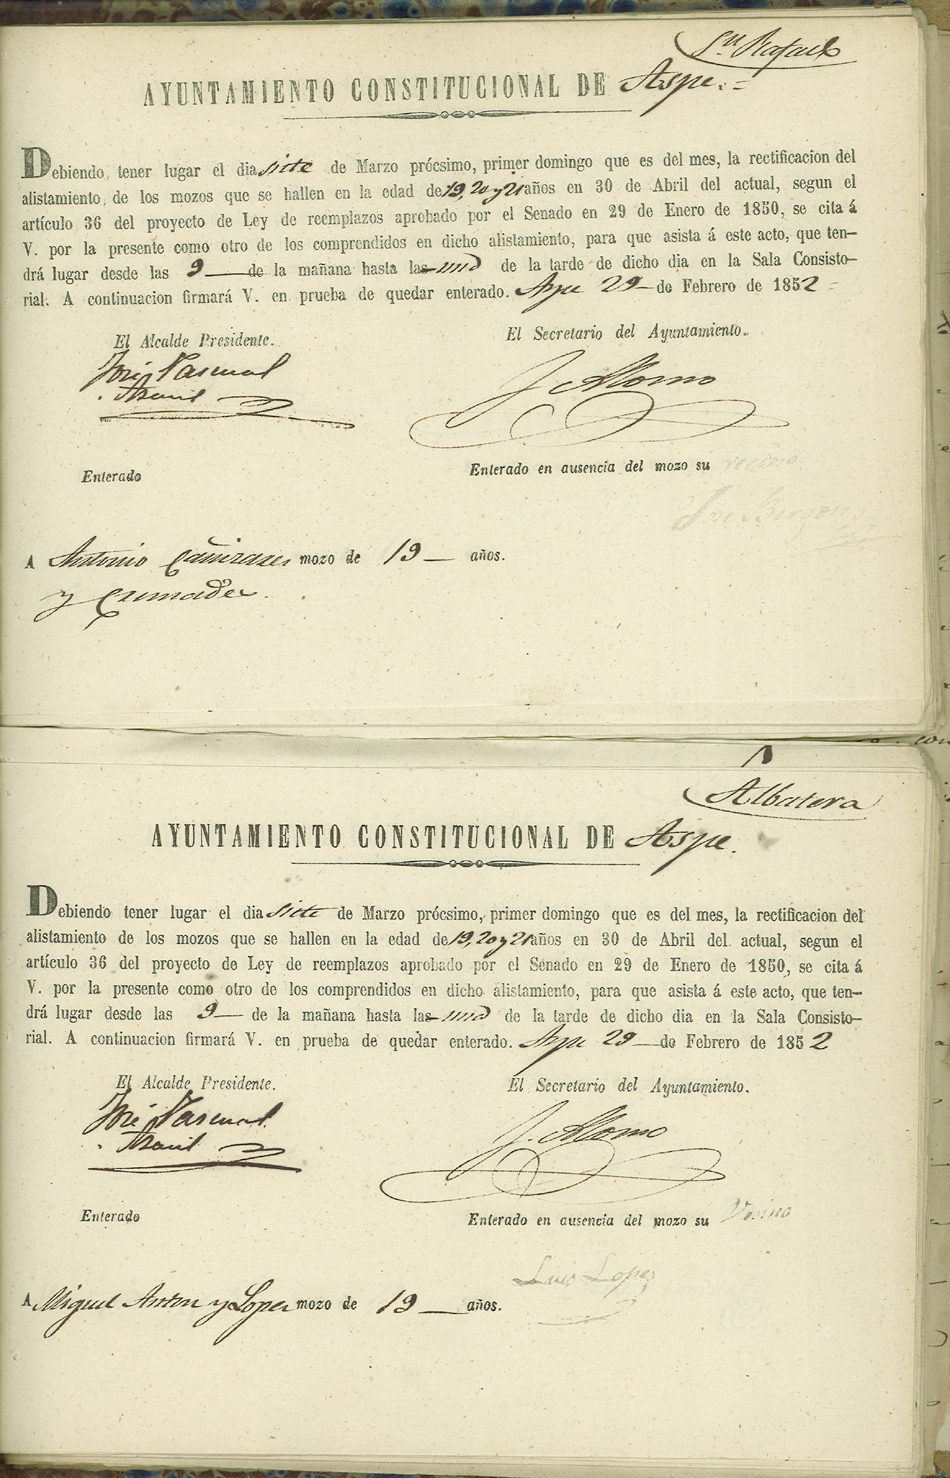 Sn Rafael
AYUNTAMIENTO CONSTITUCIONAL DE Aspe.=
Debiendo tener lugar el dia siete de Marzo prócsimo, primer domingo que es del mes, la rectificacion del
alistamiento de los mozos que se hallen en la edad de 19, 20 y 21 años en 30 de Abril del actual, segun el
artículo 36 del proyecto de Ley de reemplazos aprobado por el Senado en 29 de Enero de 1850, se cita á
V. por la presente como otro de los comprendidos en dicho alistamiento, para que asista á este acto, que ten-
drá lugar desde las 9 de la mañana hasta las una de la tarde de dicho dia en la Sala Consisto-
rial. A continuacion firmará V. en prueba de quedar enterado. Aspe 29 de Febrero de 1852=
El Alcalde Presidente. El Secretario del Ayuntamiento.
José Pascual J. Alonso
Enterado Enterado en ausencia del mozo su vecino
José
A Antonio Cañizares mozo de 19 años.
y Cremades.
Albatera
AYUNTAMIENTO CONSTITUCIONAL DE Aspe.
Debiendo tener lugar el dia siete de Marzo prócsimo, primer domingo que es del mes, la rectificacion del
alistamiento de los mozos que se hallen en la edad de 19, 20 y 21 años en 30 de Abril del actual, segun el
artículo 36 del proyecto de Ley de reemplazos aprobado por el Senado en 29 de Enero de 1850, se cita á
V. por la presente como otro de los comprendidos en dicho alistamiento, para que asista á este acto, que ten-
drá lugar desde las 9 de la mañana hasta las una de la tarde de dicho dia en la Sala Consisto-
rial. A continuacion firmará V. en prueba de quedar enterado. Aspe 29 de Febrero de 1852
El Alcalde Presidente. El Secretario del Ayuntamiento.
José Pascual J. Alonso
Enterado Enterado en ausencia del mozo su Vesino
Luis Lopez
A Miguel Anton y Lopez mozo de 19 años.